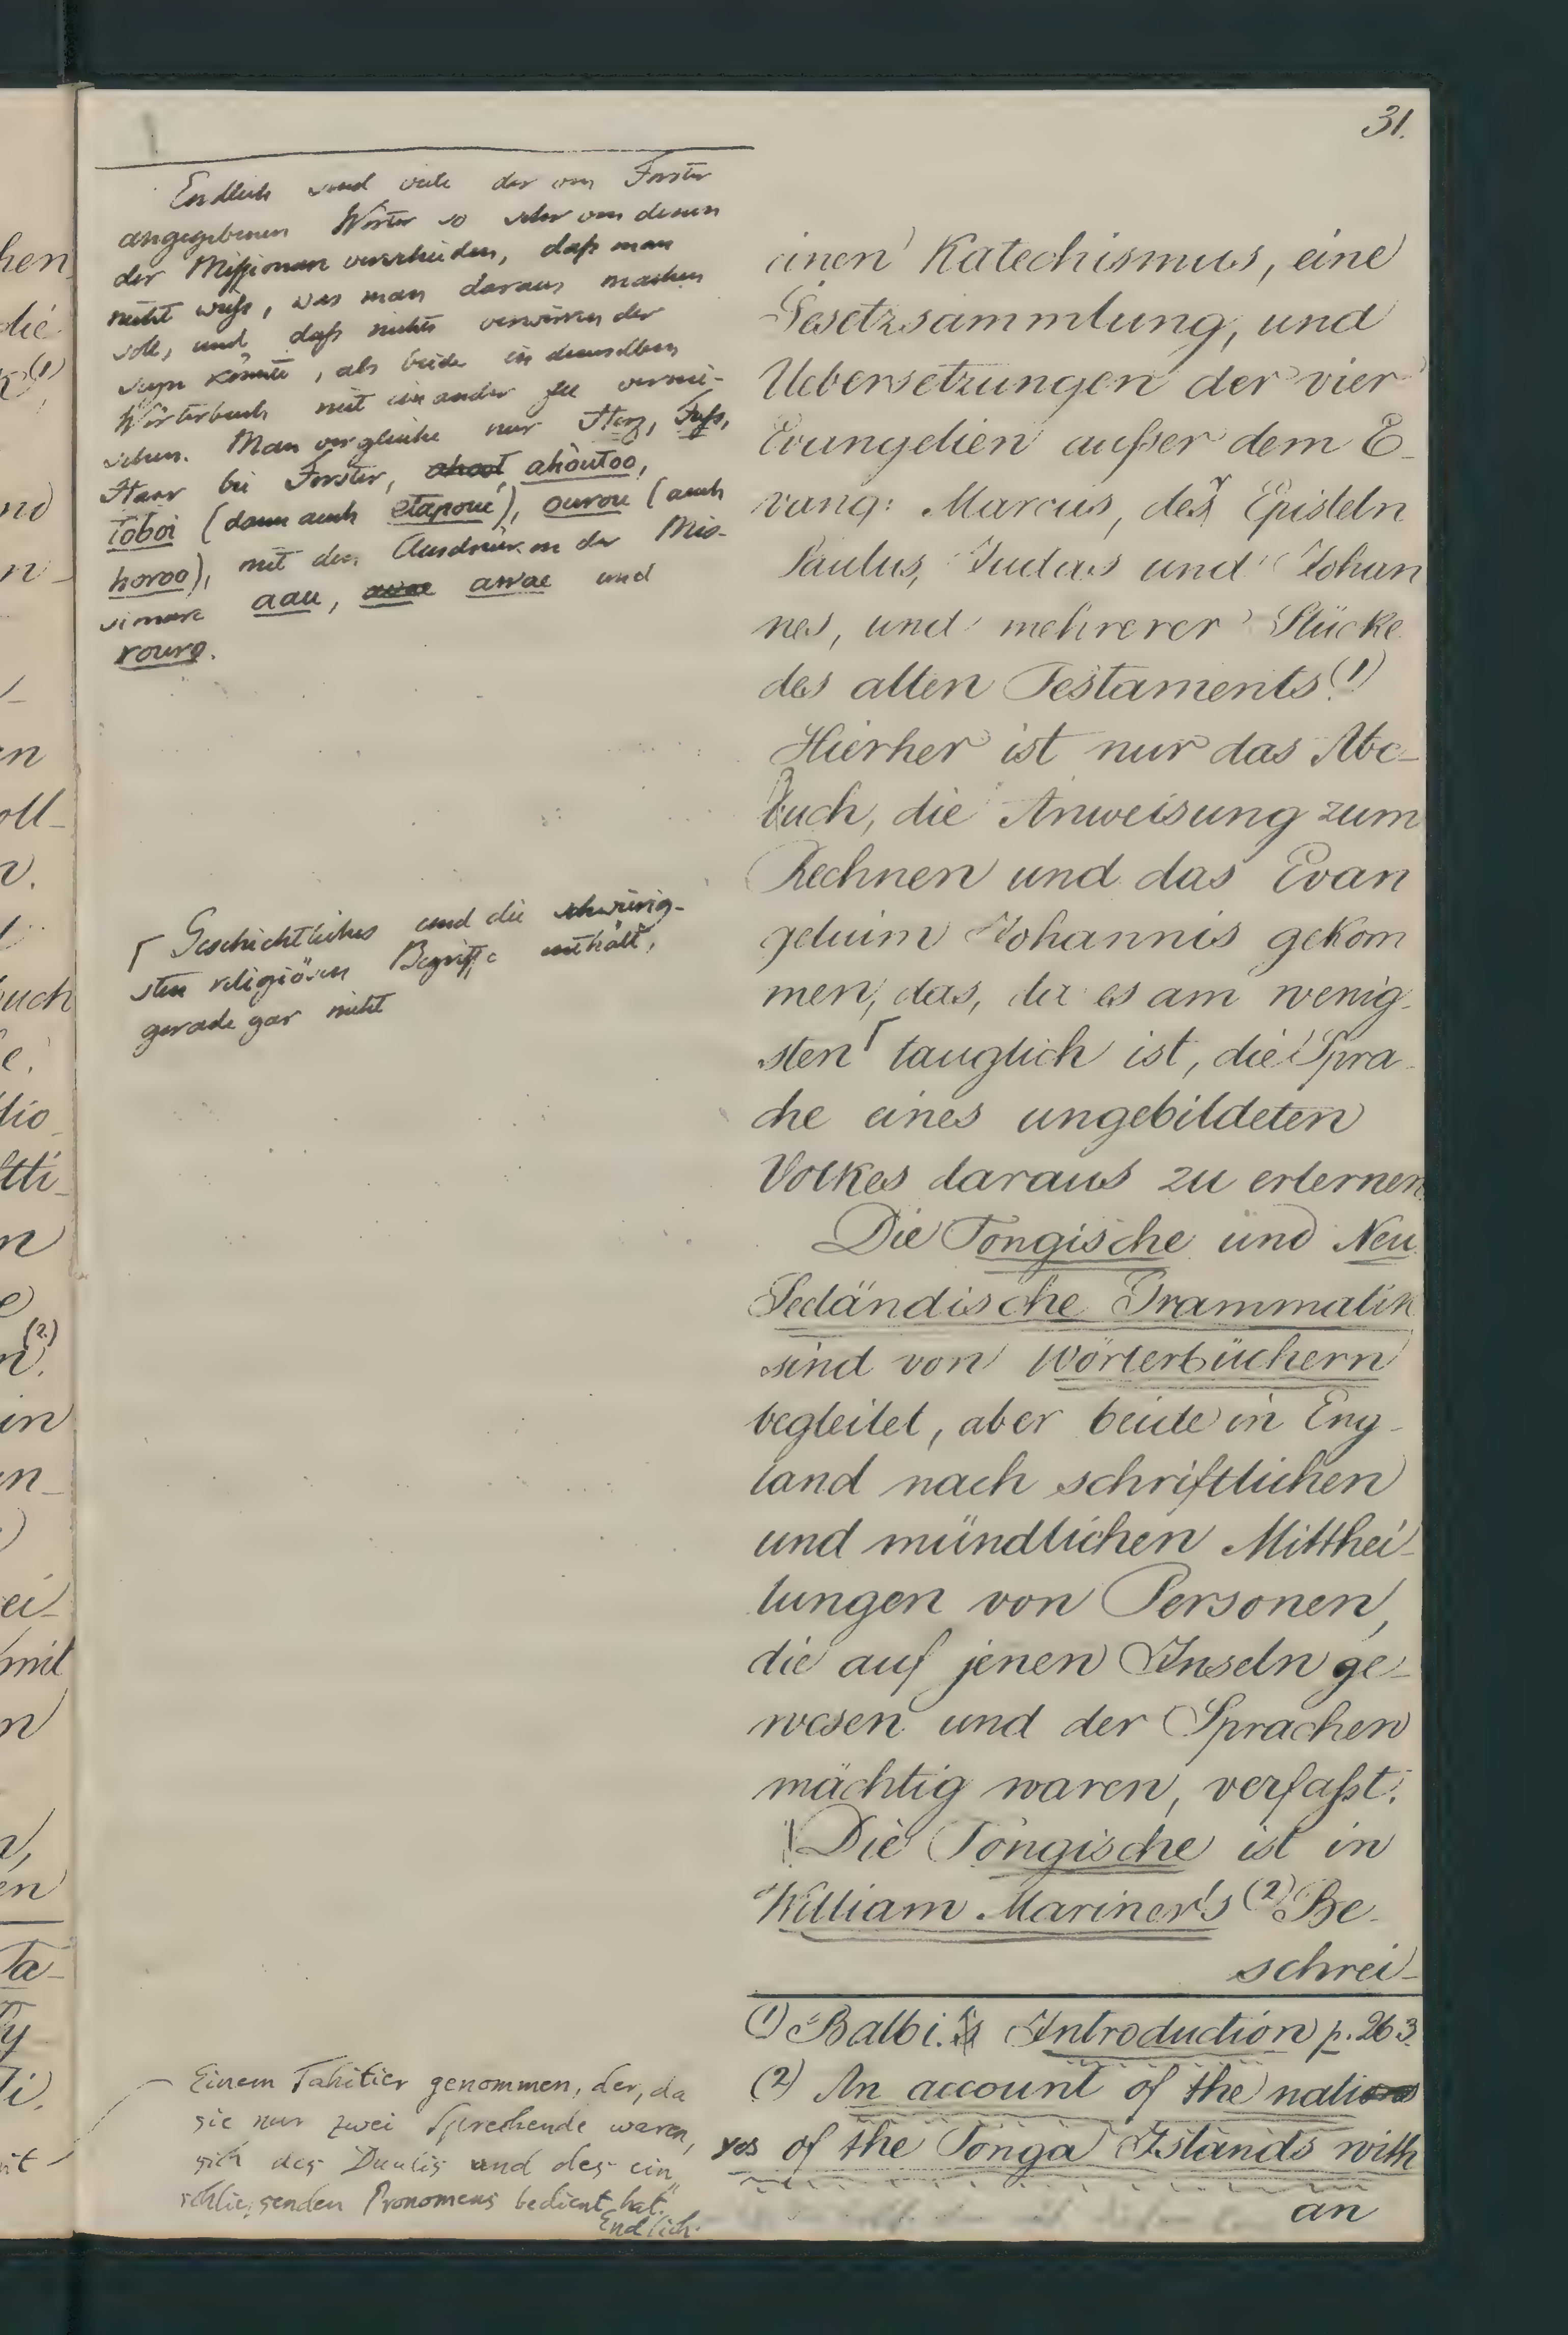 31.
Endlich sind viele der von Forster
angegebenen Wörter so sehr von denen
der Missionare verschieden, daß man
nicht weiß, was man daraus machen
soll, und daß nichts verwirrender
seyn könnte, als beide in demselben
Wörterbuch mit einander zu vermi-
schen. Man vergleiche nur Herz, Fuß,
Haar bei Forster, ahoutoo,
toboi (dann auch etapoue), ourou (auch
horoo), mit den Ausdrücken der Mis-
sionare aau, awae und
rouro.
einen Katechismus, eine
Gesetzsammlung, und
Uebersetzungen der vier
Evangelien außer dem E-
vang: Marcus, der Episteln
Paulus, Judas und Johan
nes, und mehrerer Stücke
des alten Testaments.(1)
Hierher ist nur das Abc-
buch, die Anweisung zum
Rechnen und das Evan
gelium Johannis gekom
men, das, da es am wenig-
sten ⌈ tauglich ist, die Spra-
che eines ungebildeten
Volkes daraus zu erlernen.
⌈ Geschichtliches und die schwierig-
sten religiösen Begriffe enthält,
gerade gar nicht
Die Tongische und Neu
Seeländische Grammatik
sind von Wörterbüchern
begleitet, aber beide in Eng-
land nach schriftlichen
und mündlichen Mitthei-
lungen von Personen,
die auf jenen Inseln ge-
wesen und der Sprachen
mächtig waren, verfaßt.
Die Tongische ist in
William Mariner's (2) Be-
schrei-
(1) Balbi. Introduction p. 263.
(2) An account of the nati
ves of the Tonga Islands with
an
Einem Tahitier genommen, der, da
sie nur zwei Sprechende waren,
sich des Dualis und des ein
schliessenden Pronomens bedient hat."
Endlich